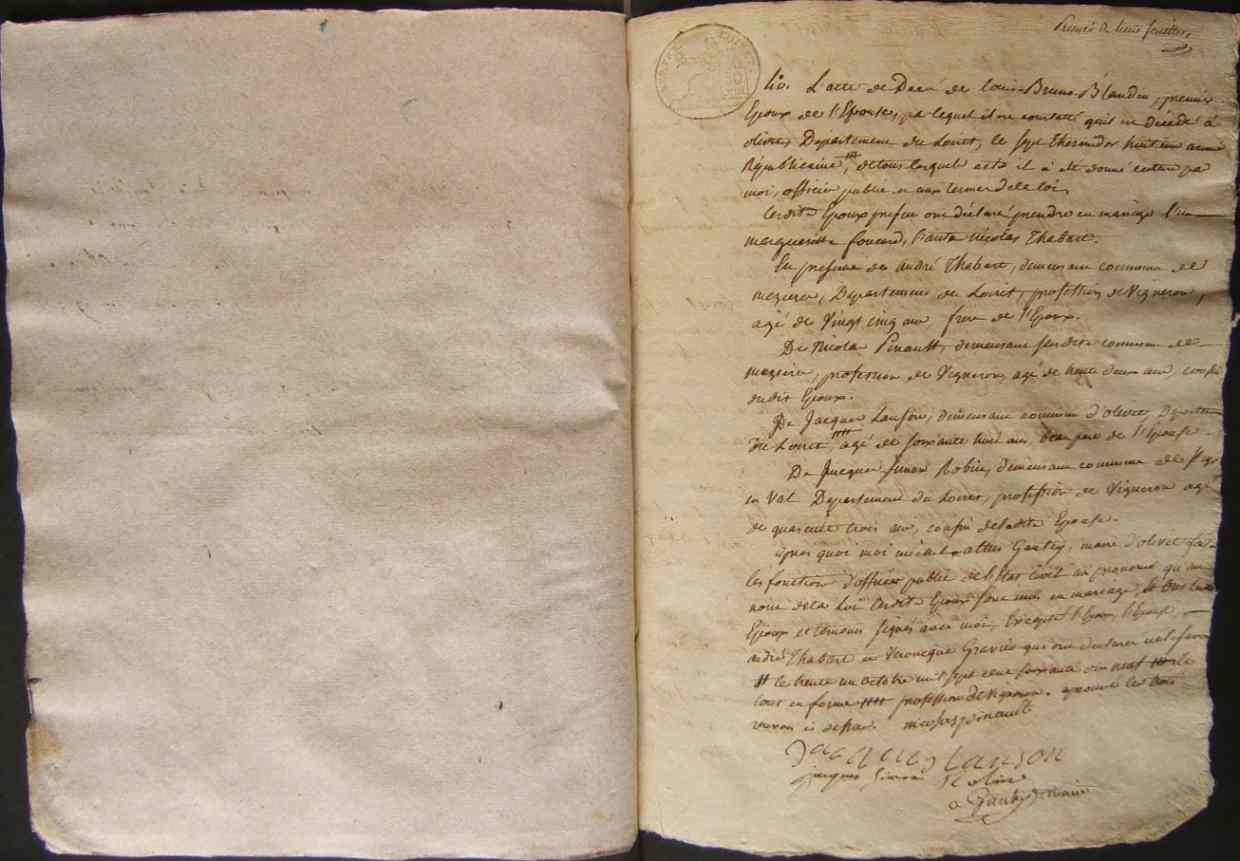 Premier de trente feuilles
4°. L'acte de Décé de Louis Bruno Blandin, premier
Epoux de l'Epouse, par lequel il est constaté qu'il est décédé à
olivet Departement du Loiret, le sept thermidor huit an
Républicaine, de tous lesquels actes il a été donné lecture par
moi, officier public et aux termes de la loi,
lesdits Epoux presens ont déclaré prendre en mariage l'un
marguerite foucard, l'autre nicolas Thabart.
En presence de andré Thabart, demeurant commune de
mezieres, Departement du Loiret, profession de Vigneron,
agé de Vingt cinq ans, frere de l'Epoux.
De Nicolas Pinault, demeurant susdite commune de
mezieres, profession de Vigneron, agé de trente deux ans, cousin
dudit Epoux.
De Jacques Lanson, demeurant commune d'olivet, Departement
du Loiret, agé de soixante huit ans, beau pere de l'Epouse
De Jacques Simon Robin, demeurant commune de St
en Val Departement du Loiret, profession de Vigneron agé
de quarante trois ans, cousin de ladite Epouse.
Apres quoi moi michel Gautry, maire d'olivet
les fonctions d'officier public de l'Etat civil ai prononcé qu'au
nom de la Loi lesdits Epoux sont unis en mariage, et ont lesdits
Epoux et temoins signés avec moi, Excepté l'Epoux, l'Epouse
andré Thabart et Veronique Graviès qui ont declaré ne le savoir
le trente un octobre mil sept cent soixante neuf
tout en forme profession de Vigneron. approuvé les trois
renvois ci dessus. nicolas pinault
Jacques Lanson
Jacques Simon Robin
Gautry maire